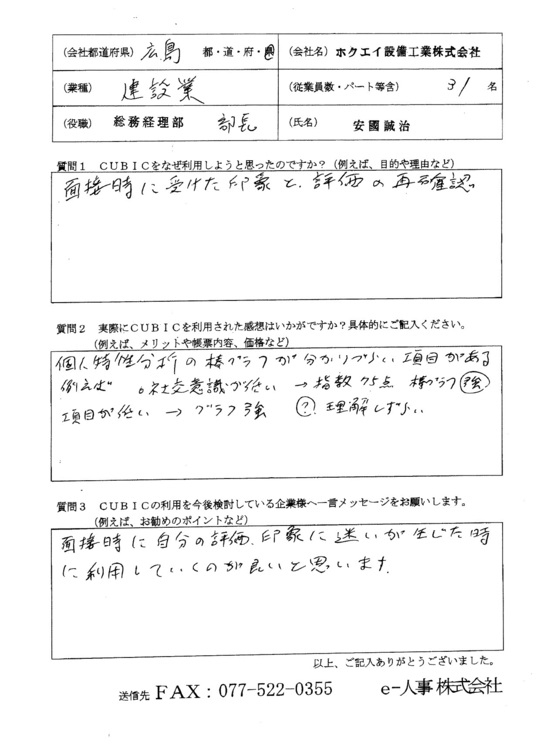 （会社都道府県） 広島 都・道・府・県 （会社名） ホクエイ設備工業株式会社
（業種） 建設業 （従業員数・パート等含） 31 名
（役職） 総務経理部 部長 （氏名） 安國誠治
質問１ ＣＵＢＩＣをなぜ利用しようと思ったのですか？（例えば、目的や理由など）
面接時に受けた印象と、評価の再確認。
質問２ 実際にＣＵＢＩＣを利用された感想はいかがですか？具体的にご記入ください。
（例えば、メリットや帳票内容、価格など）
個人特性分析の棒グラフが分かりづらい項目がある
例えば 。社交意識が低い → 指数75点 棒グラフ強
項目が低い → グラフ強 ? 理解しずらい
質問３ ＣＵＢＩＣの利用を今後検討している企業様へ一言メッセージをお願いします。
（例えば、お勧めのポイントなど）
面接時に自分の評価、印象に迷いが生じた時
に利用していくのが良いと思います。
以上、ご記入ありがとうございました。
送信先 ＦＡＸ：077-522-0355 e-人事株式会社